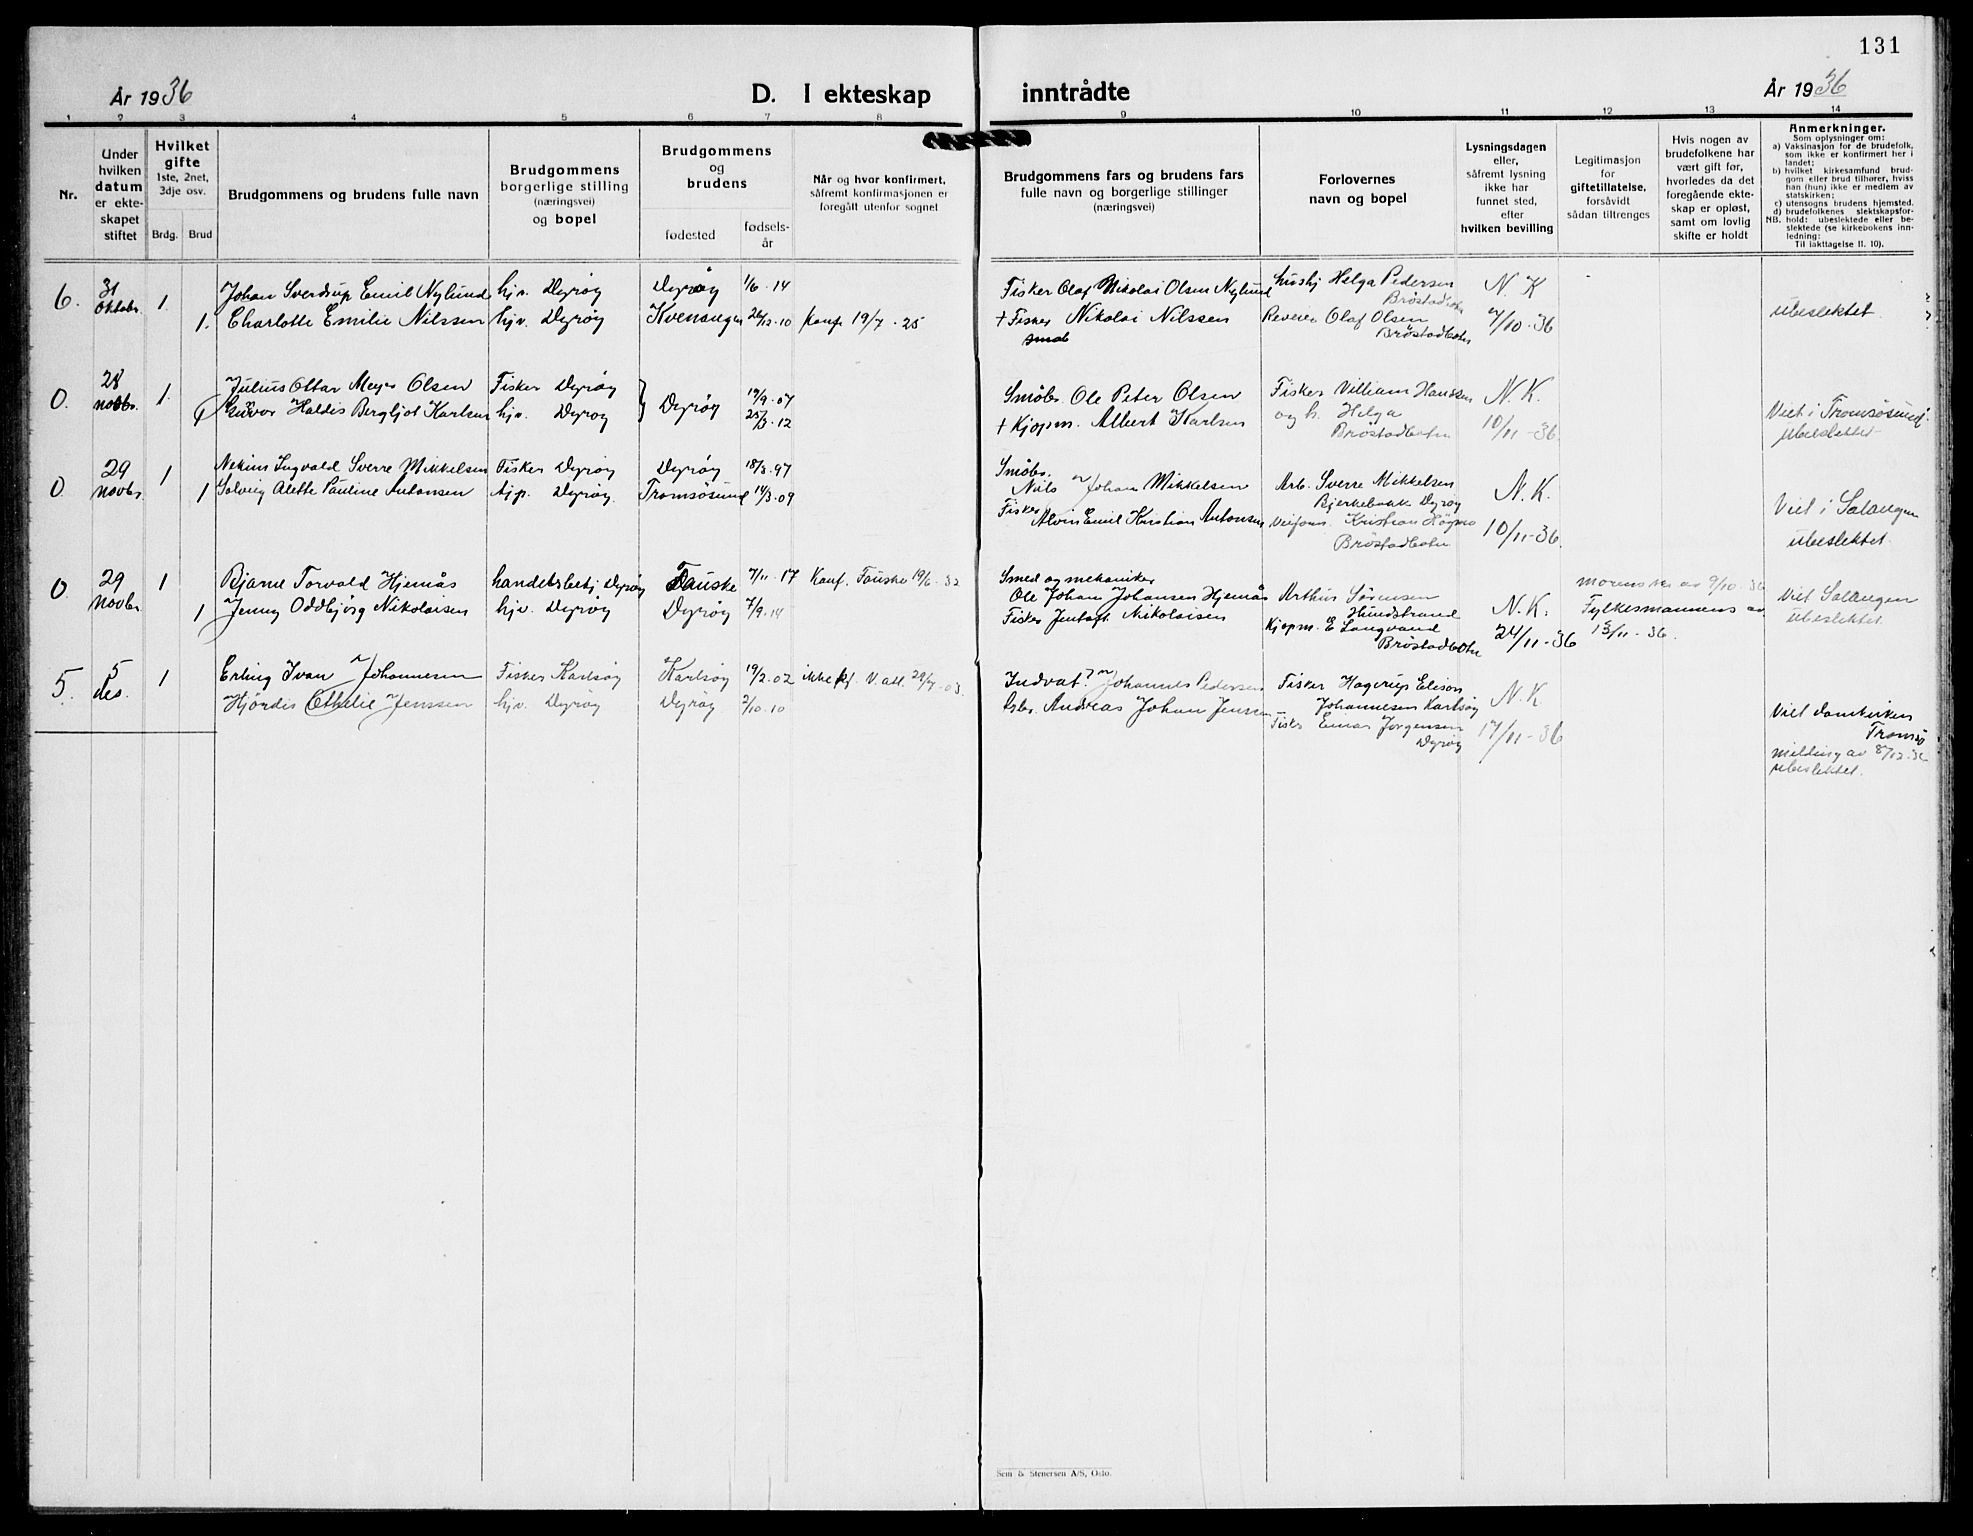 131
År 1936
D. I ekteskap inntrådte
År 1936
1 2 3 4 5 6 7 8 9 10 11 12 13 14
Nr.
Under hvilken datum er ekteskapet stiftet
Hvilket gifte 1ste, 2net, 3dje osv.
Brdg. Brud
Brudgommens og brudens fulle navn
Brudgommens borgerlige stilling (næringsvei) og bopel
Brudgommens og brudens
fødested
fødselsår
Når og hvor konfirmert, såfremt konfirmasjonen er foregått utenfor sognet
Brudgommens fars og brudens fars fulle navn og borgerlige stillinger (næringsvei)
Forlovernes navn og bopel
Lysningsdagen eller, såfremt lysning ikke har funnet sted, efter hvilken bevilling
Legitimasjon for giftetillatelse, forsåvidt sådan tiltrenges
Hvis nogen av brudefolkene har vært gift før, hvorledes da det foregående ekteskap er opløst, samt om lovlig skifte er holdt
Anmerkninger.
Som oplysninger om:
a) Vaksinasjon for de brudefolk, som ikke er konfirmert her i landet;
b) hvilket kirkesamfund brudgom eller brud tilhører, hviss han (hun) ikke er medlem av statskirken;
c) utensogns brudens hjemsted.
d) brudefolkenes slektskapsforhold: ubeslektede eller beslektede (se kirkebokens innledning:
NB.
Til iakttagelse II. 10).
6. 31 Oktobr. 1 Johan Sverdrup Emil Nylund hjv. Dyrøy Dyrøy 1/6 - 14 Fisker Olaf Mikolai Olsen Nylund Helga Pedersen N. K
1. Charlotte Emilie Nilssen hjv. Dyrøy Kvenangen 26/12-10 Konf. 19/7 - 25 + Fisker Nikolai Nilssen Olaf Olsen Brøstadbotn /10-36 ubeslektet
0. 28 novbr. 1. Julius Ottar Meyer Olsen Fisker Dyrøy 19/9-07 Småbr. Ole Peter Olsen Fisker William Hanssen N. K.
1 Haldis Bergljot Karlsen hjv. Dyrøy Dyrøy 25/3-12 + Kjøpm. Albert Karlsen og h. Helga Brøstadbotn 10/11-36 Viet i Tromsøsund. ubeslektet
0. 29 novbr 1 Ingvald Sverre Mikkelsen Fisker Dyrøy Dyrøy 18/3-97 Småbr. Nils Johan Mikkelsen Arb. Sverre Mikkelsen Bjerkebakk Dyrøy N. K.
1 Solveig Alette Pauline Antonsen Dyrøy. Tromsøsund 14/3-09 Fisker Alvin Emil Kristian Antonsen Kristian Brøstadbotn 10/11-36. Viet i Salangen ubeslektet
0. 29 Novbr 1 Bjarne Torvald Hjemås handelsbetj. Dyrøy Fauske 7/11-17 Konf. Fauske 19/6-32 Smed og mekaniker Ole Johan Johansen Hjemås Arthur Sørensen Hundstrand N. K. av 9/10-36
1 Jenny Oddbjørg Nikolaisen hjv. Dyrøy Dyrøy 7/9-14 Fisker Jentoft Nikolaisen Kjøpm. E Langvand Brøstadbotn 24/11-36 Fylkesmannens av 13/11-36. Viet Salangen ubeslektet
5. 5 des. 1 Erling Ivan Johannesen Fisker Karlsøy Karlsøy 19/2-02 ikke V. att. Indvat.? Johannes Pedersen Fisker Hagerup Elison Johannesen Karlsøy N. K.
Hjördis Othelie Jenssen hjv. Dyrøy Dyrøy 2/10-10 Gbr. Andreas Johan Jenssen Fisker Einar Jørgensen Dyrøy 17/11-36 Viet domkirken Tromsø melding av 8/12-36 ubeslektet.
Sem & Stenersen A/S, Oslo.